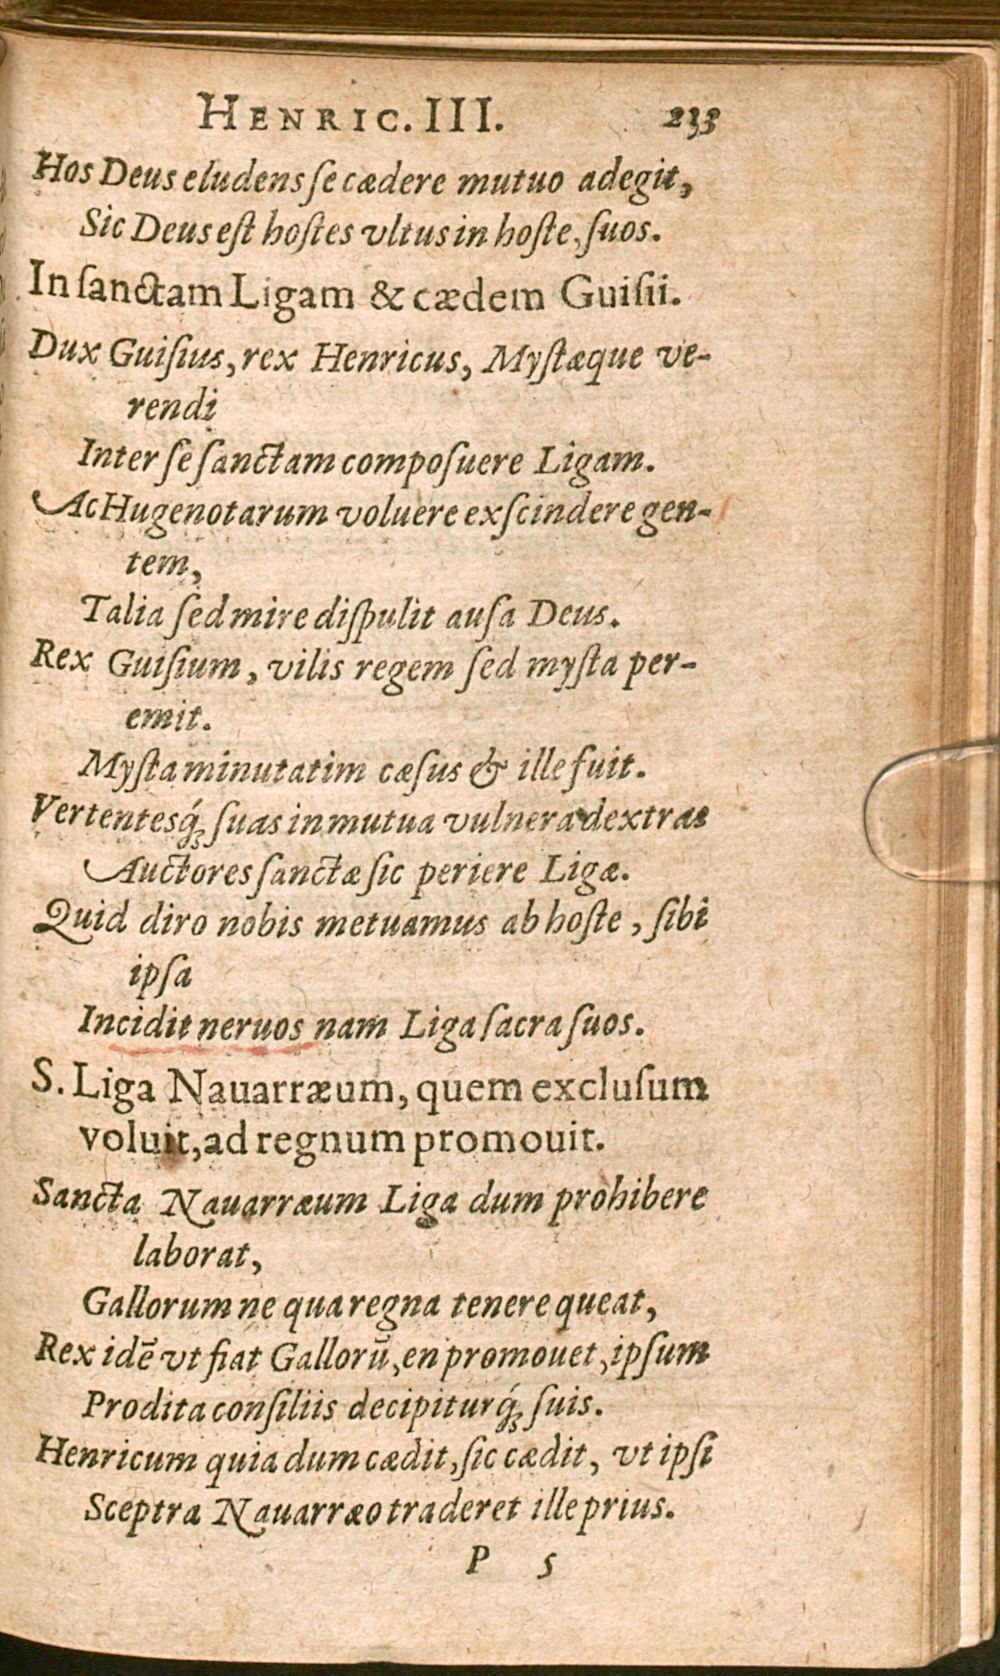 HENRIC. III. 233
Hos Deus eludens ſe cædere mutuo adegit,
Sic Deus eſt hoſtes vltus in hoſte, ſuos.
In ſanctam Ligam & cædem Guiſii.
Dux Guiſius, rex Henricus, Myſtæque ve-
rendi
Inter ſe ſanctam compoſuere Ligam.
Ac Hugenotarum voluere exſcindere gen-
tem,
Talia ſed mire diſpulit auſa Deus.
Rex Guiſium, vilis regem ſed myſta per-
emit.
Myſta minutatim cæſus & ille fuit.
Vertentesq́; ſuas in mutua vulnera dextras
Auctores ſanctæ ſic periere Ligæ.
Quid diro nobis metuamus ab hoſte, ſibi
ipſa
Incidit neruos nam Liga ſacra ſuos.
S. Liga Nauarræum, quem excluſum
voluit, ad regnum promouit.
Sancta Nauarræum Liga dum prohibere
laborat,
Gallorum ne qua regna tenere queat,
Rex idē vt fiat Gallorū, en promouet, ipſum
Prodita conſiliis decipiturq́; ſuis.
Henricum quia dum cædit, ſic cædit, vt ipſi
Sceptra Nauarræo traderet ille prius.
P 5